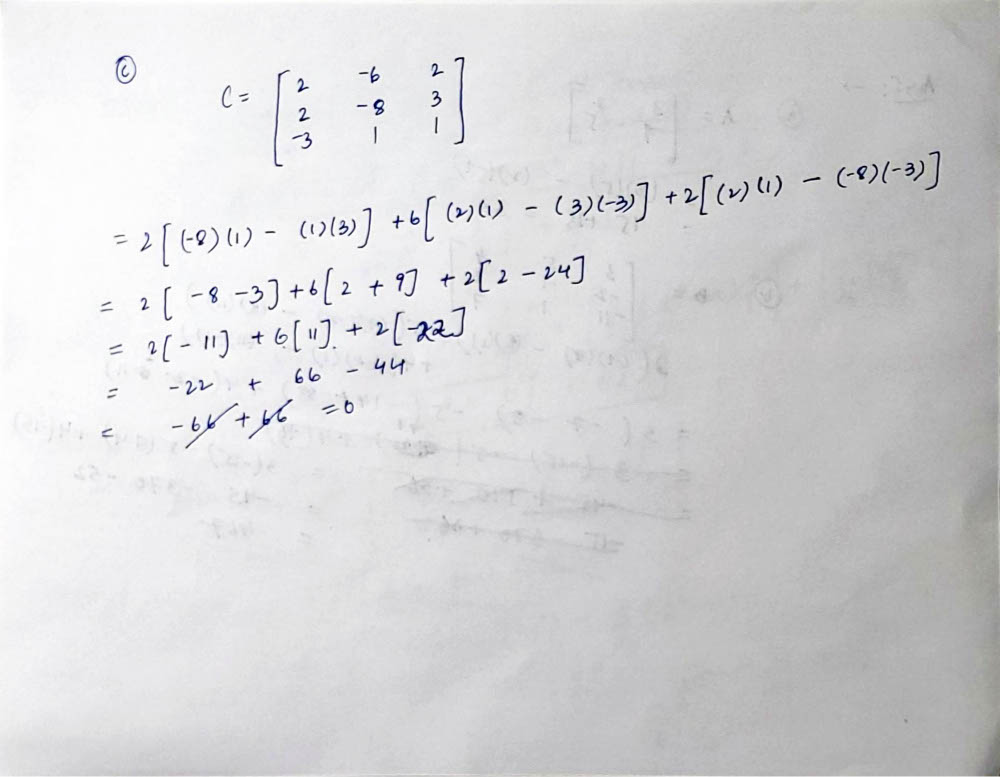 (c)
C = [ 2 -6 2
2 -8 3
-3 1 1 ]
= 2[(-8)(1) - (1)(3)] +6[(2)(1) - (3)(-3)] +2[(2)(1) - (-8)(-3)]
= 2[-8-3]+6[2 + 9] +2[2 - 24]
= 2[-11] + 6[11] + 2[-22]
= -22 + 66 - 44
= -66 + 66 = 0